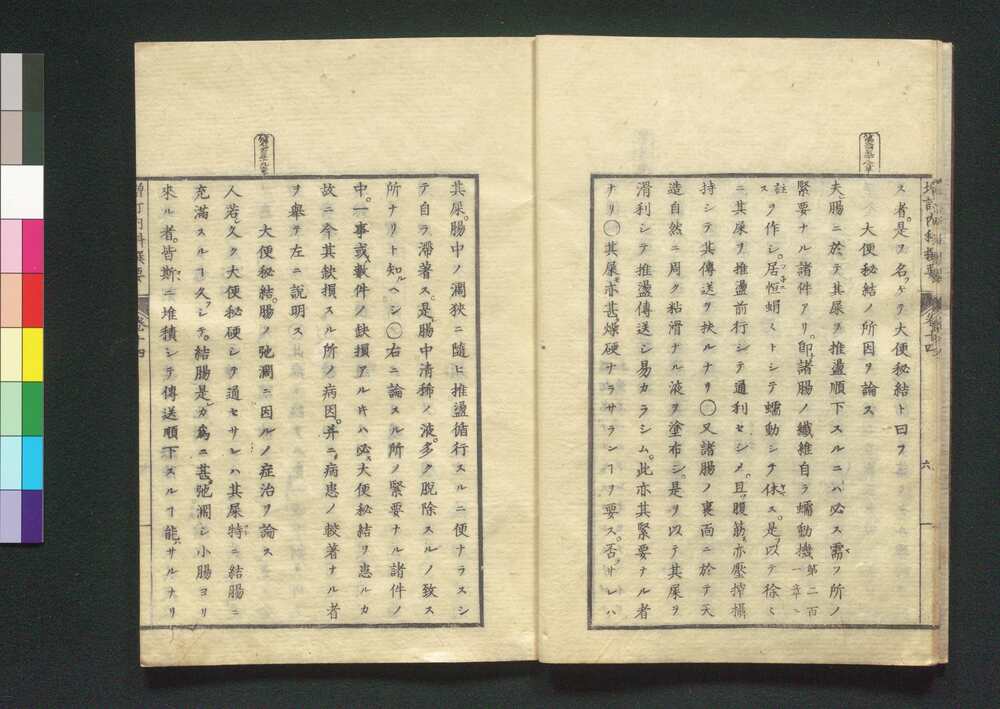 ス者。是ヲ名ケテ大便秘結ト曰フ
大便秘結ノ所因ヲ論ス
夫腸ニ於テ其屎ヲ推盪順下スルニハ必ス需ツ所ノ
緊要ナル諸件アリ。即諸腸ノ纖維自ラ蠕動機第二百一章ニ
註スヲ作シ。居恒蜎ミトシテ蠕動シテ休ス。是ヲ以テ徐ミ
ニ其屎ヲ推盪前行シテ通利セシメ。且腹筋亦壓搾攝
持シテ其傳送ヲ扶ルナリ〇又諸腸ノ裏面ニ於テ天
造自然ニ周ク粘滑ナル液ヲ塗布シ。是ヲ以テ其屎ヲ
滑利シテ推盪傳送シ易カラシム。此亦其緊要ナル者
ナリ〇其屎亦甚燥硬ナラサランヿヲ要ス。否サレハ
其屎。腸中ノ濶狹ニ隨ヒ推盪循行スルニ便ナラスシ
テ自ラ滯著ス。是腸中清稀ノ液。多ク脱除スルノ致ス
所ナリト知ルヘシ〇右ニ論スル所ノ緊要ナル諸件ノ
中。一事或數件ノ缺損アルキハ必大便秘結ヲ患ルカ
故ニ今其缺損スル所ノ病因。并ニ病患ノ較著ナル者
ヲ擧テ左ニ説明ス
大便秘結。腸ノ弛濶ニ因ルノ症治ヲ論ス
人若久ク大便秘硬シテ通セサレハ其屎特ニ結腸ニ
充滿スルヿ久フシテ。結腸是カ爲ニ甚弛濶シ小腸ヨリ
來ル者。皆斯ニ堆積シテ傳送順下スルヿ能ハサルナリ